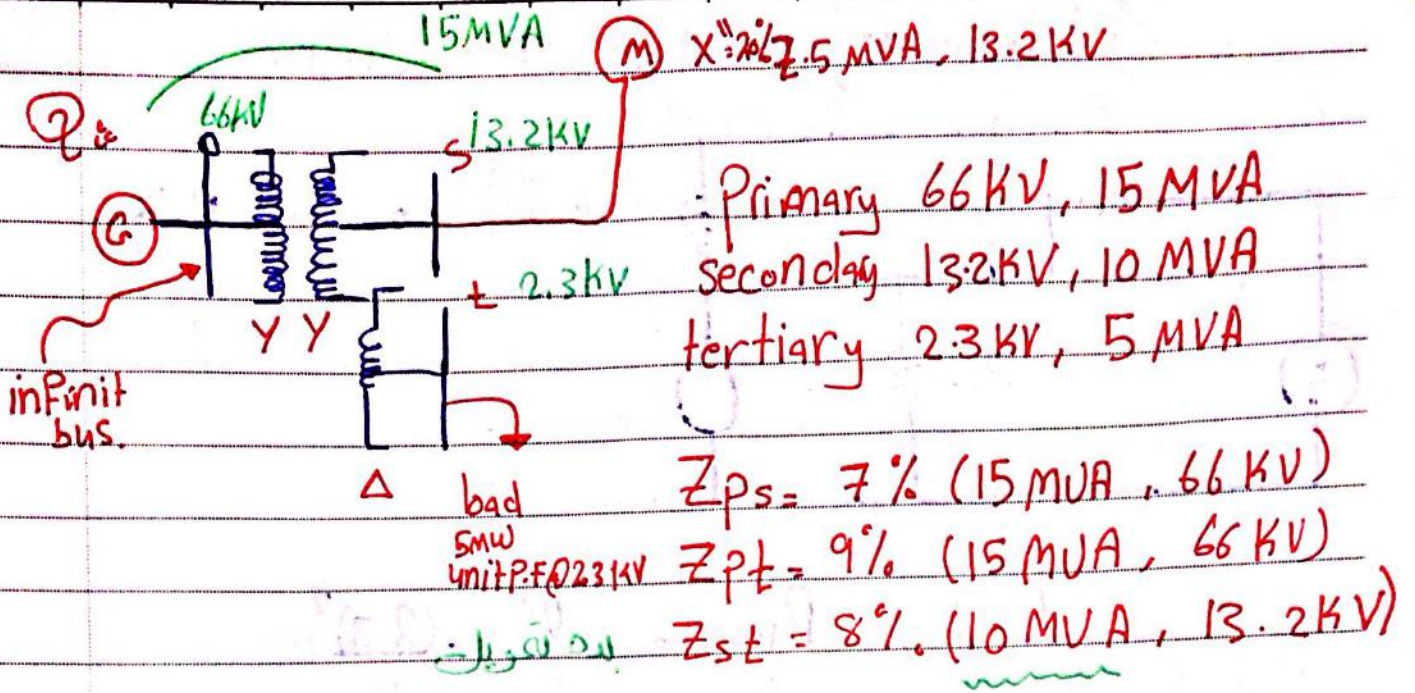 15MVA
M X"=20% 7.5 MVA, 13.2KV
Q:
66KV
S 13.2KV
G
Primary 66KV, 15 MVA
secondary 13.2KV, 10 MVA
t 2.3KV
tertiary 2.3KV, 5 MVA
Y Y
infinit
bus.
Δ
load
5MW
unit P.F @ 2.3KV
Zps = 7% (15 MVA, 66KV)
Zpt = 9% (15 MVA, 66KV)
Zst = 8%. (10 MVA, 13.2KV)